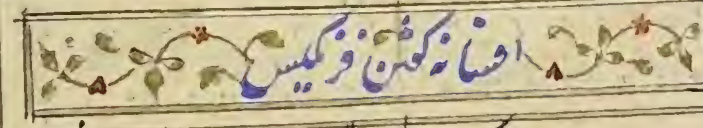 افسانه کفتن فرنکیس